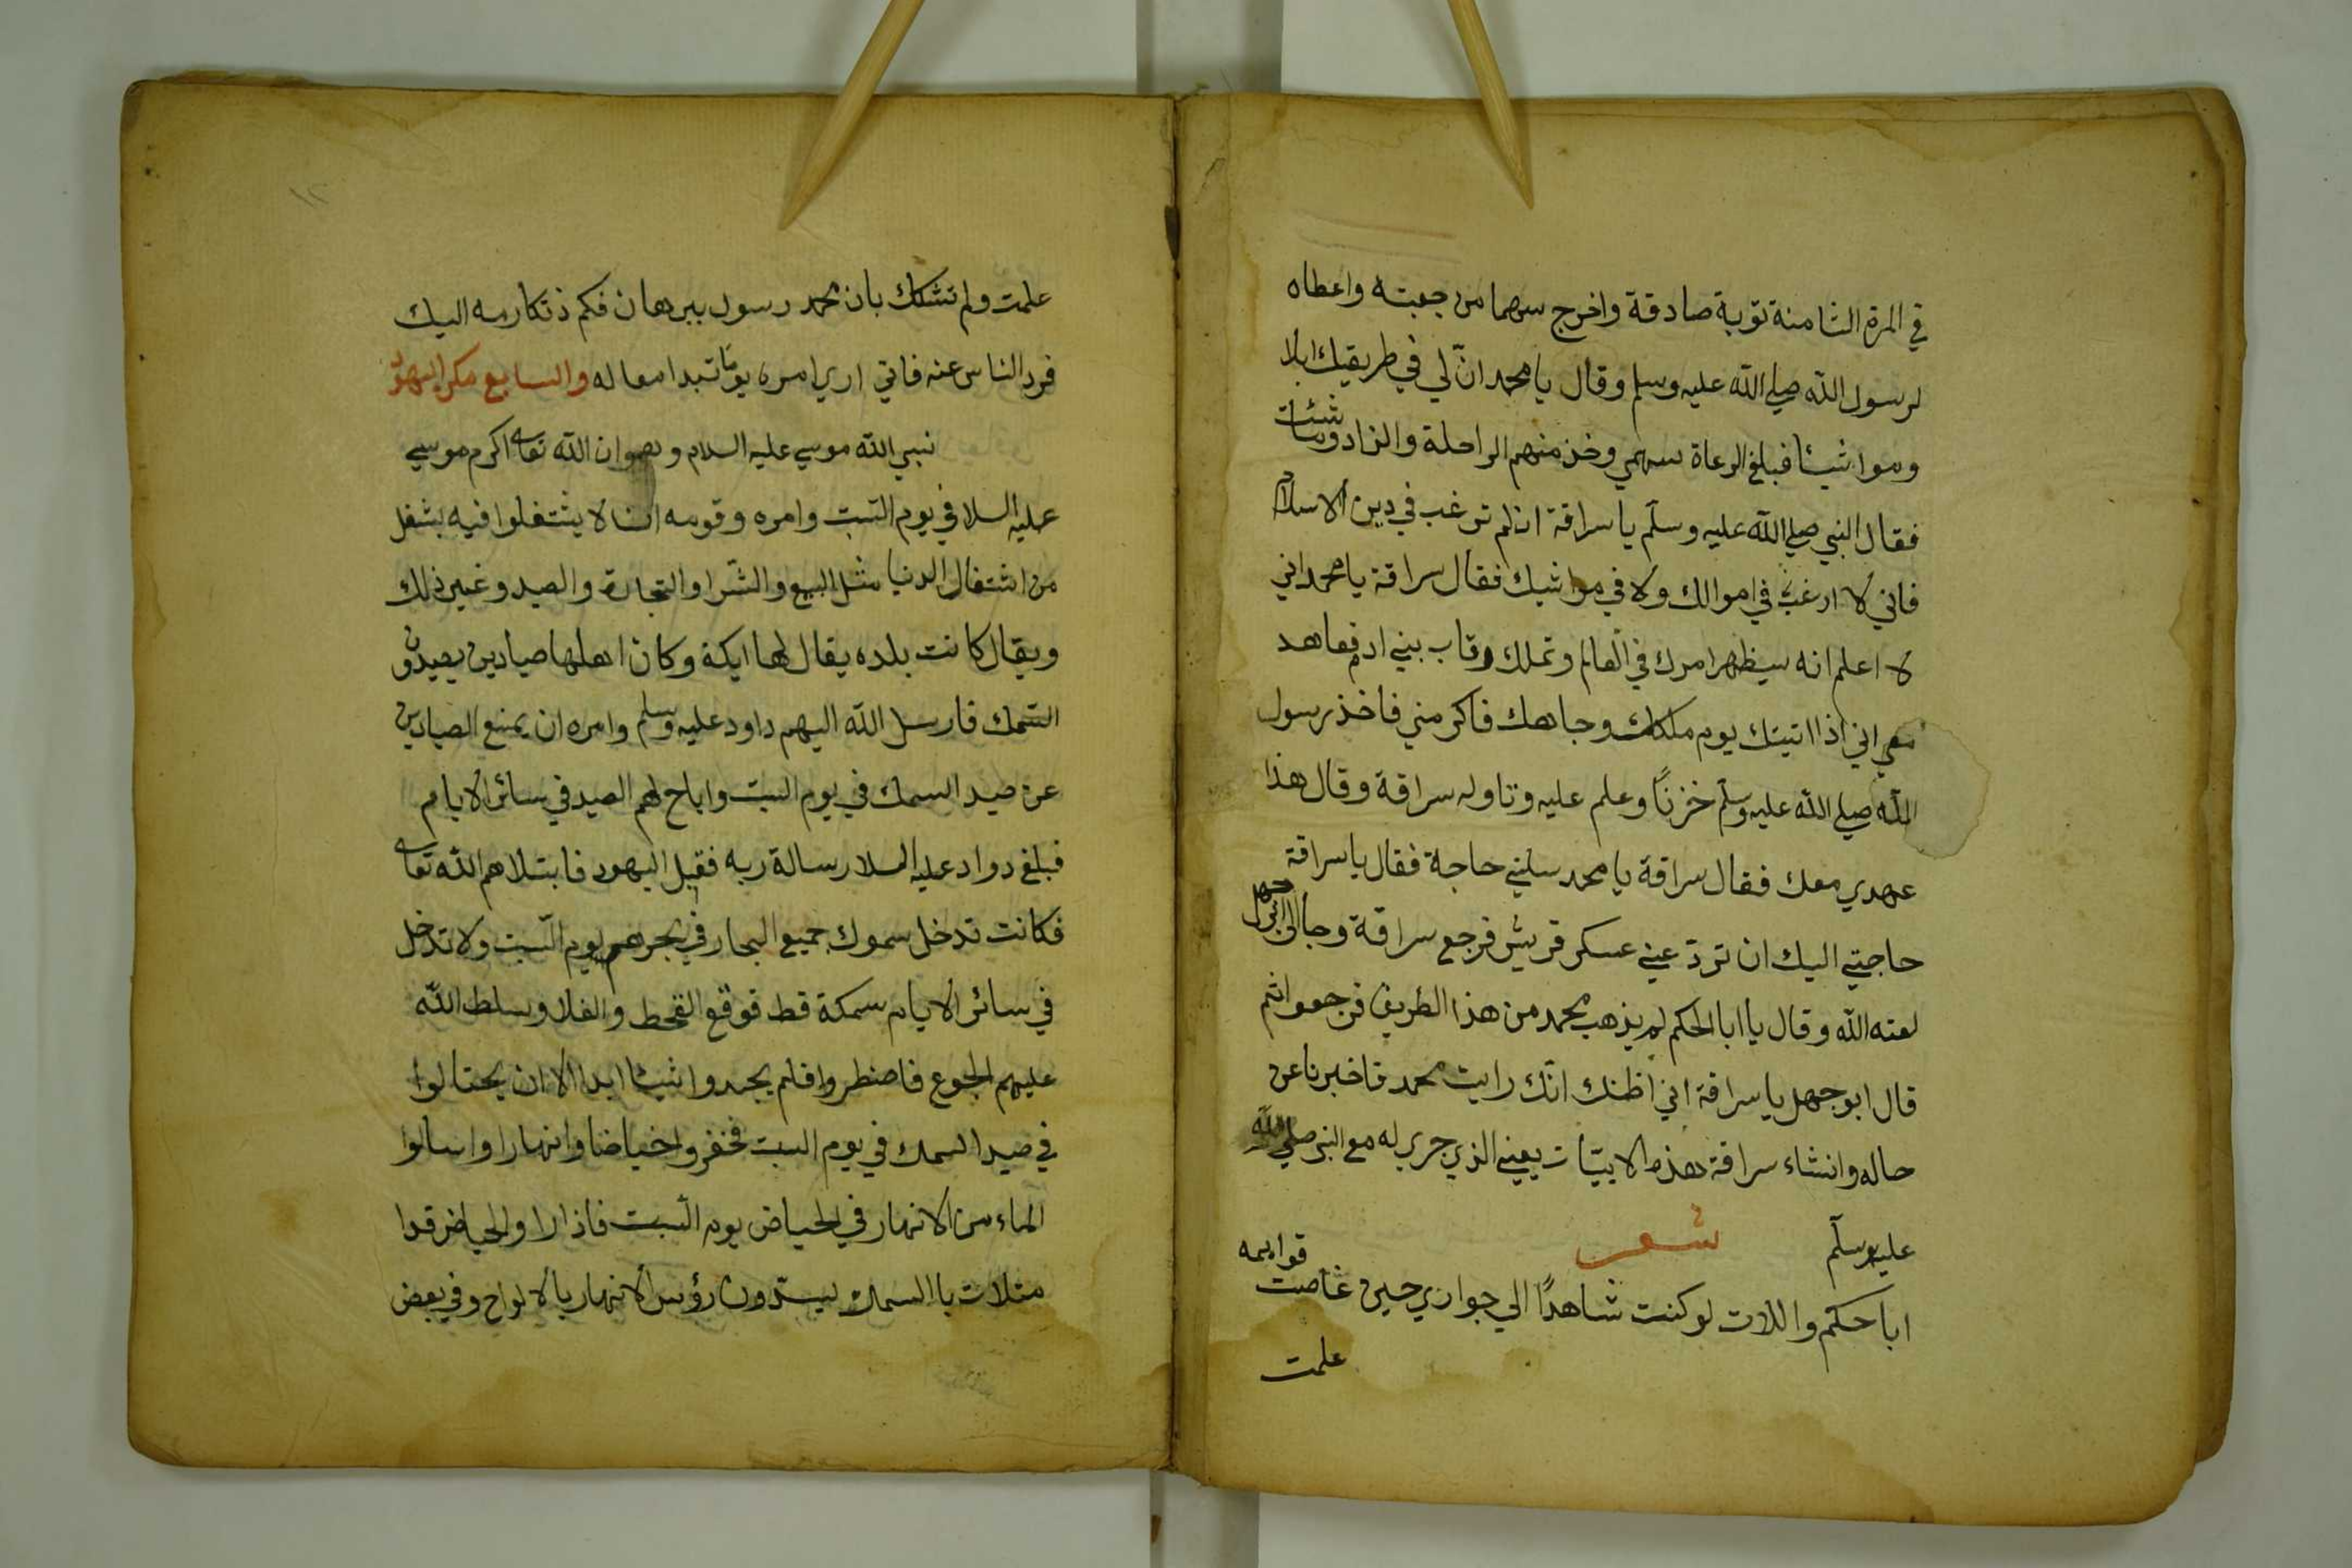 في المرة الثامنة توبة صادقة واخرج سهما من جعبته واعطاه
لرسول الله صلي الله عليه وسلم وقال يا محمد انّ لي في طريقك ابلا
ومواشيئا فبلغ الرعاة سهمي وخذ منهم الراحلة والزاد وماشئت
فقال النبي صلي الله عليه وسلّم يا سراقة ان لم ترغب في دين الاسلام
فاني لا ارغب في اموالك ولا في مواشيك فقال سراقة يا محمد اني
لا اعلم انه سيظهر امرك في العالم وتملك رقاب بني ادم فعاهد
معي اني اذا اتيتك يوم ملكك وجاهك فاكرمني فاخذ رسول
الله صلي الله عليه وسلّم خزنًا وعلم عليه وناوله سراقة وقال هذا
عهدي معك فقال سراقة يا محمد سلني حاجة فقال يا سراقة
حاجتي اليك ان تردّ عني عسكر قريش فرجع سراقة وجا الي ابي جهل
لعنه الله وقال يا ابا الحكم لم يذهب محمد من هذا الطريق فرجعوا ثم
قال ابو جهل يا سراقة اني اظنك انّك رايت محمد فاخبرنا عن
حاله وانشاء سراقة هذه الابيّات يعني الذي جري له مع النبي صلي الله
عليه وسلّم شعر
ابا حكم واللات لو كنت شاهدًا الي جوادي حين غاصت قوايمه
علمت
١٢
علمت ولم تشكك بان محمد رسول ببرهان فكم ذتكارمه اليك
فرد الناس عنه فاني اري امره يومًا تبدا معاله والسابع مكر اليهود
نبي الله موسي عليه السلام وهو ان الله تعالى اكرم موسي
عليه السلا في يوم السّبت وامره وقومه ان لا يشتغلوا فيه بشغل
من اشتغال الدنيا مثل البيع والشّرا والتجارة والصيد وغير ذلك
ويقال كانت بلده يقال لها ايكة وكان اهلها صيادين يصيدون
السّمك فارسل الله اليهم داود عليه وسلم وامره ان يمنع الصيادين
عن صيد السمك في يوم السبت واباح لهم الصيد في سائر الايام
فبلغ دواد عليه السلا رسالة ربه فقبل اليهود فابتلاهم الله تعالى
فكانت تدخل سموك جميع البحار في بحرهم يوم السّبت ولا تدخل
في سائر الايام سمكة قط فوقع القحط والغلا وسلط الله
عليهم الجوع فاضطروا فلم يجدوا شيئا ابدا الا ان يحتالوا
في صيد السمك في يوم السبت فحفروا حياضا وانهارا واسالوا
الماء من الانهار في الحياض يوم السّبت فاذا راو الحياض قدا
متلات با السمك يسدّون رؤس الانهار بالالواح وفي بعض